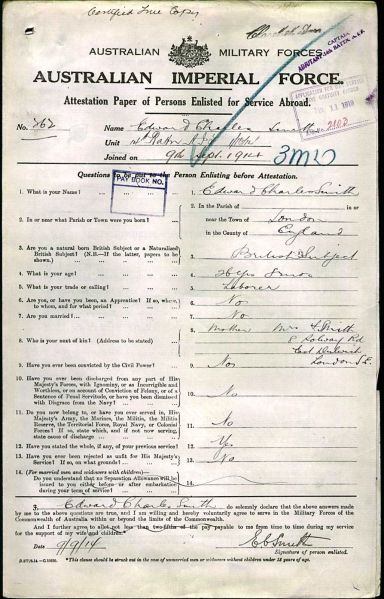 Certified True Copy
AUSTRALIAN MILITARY FORCES.
AUSTRALIAN IMPERIAL FORCE.
Attestation Paper of Persons Enlisted for Service Abroad.
No. 262 Name Edward Charles Smith
Unit
Joined on 9th Sept. 1914
PAY BOOK NO.
Questions to be put to the Person Enlisting before Attestation.
1. What is your Name? 1. Edward Charles Smith
2. In or near what Parish or Town were you born? 2. In the Parish of in or
near the Town of London
in the County of England
3. Are you a natural born British Subject or a Naturalised
British Subject? (N.B.—If the latter, papers to be
shown.) 3. British Subject
4. What is your age? 4.
5. What is your trade or calling? 5. Laborer
6. Are you, or have you been, an Apprentice? If so, where,
to whom, and for what period? 6. No
7. Are you married? 7. No
8. Who is your next of kin? (Address to be stated) 8. Mother Mrs Smith
8 Rd
East Dulwich
London S.E.
9. Have you ever been convicted by the Civil Power? 9. No
10. Have you ever been discharged from any part of His
Majesty's Forces, with Ignominy, or as Incorrigible and
Worthless, or on account of Conviction of Felony, or of a
Sentence of Penal Servitude, or have you been dismissed
with Disgrace from the Navy? 10. No
11. Do you now belong to, or have you ever served in, His
Majesty's Army, the Marines, the Militia, the Militia
Reserve, the Territorial Force, Royal Navy, or Colonial
Forces? If so, state which, and if not now serving,
state cause of discharge 11. No
12. Have you stated the whole, if any, of your previous service? 12. Yes
13. Have you ever been rejected as unfit for His Majesty's
Service? If so, on what grounds? 13. No
14. (For married men and widowers with children)—
Do you understand that no Separation Allowance will be
issued to you either before or after embarkation
during your term of service? 14.
I, Edward Charles Smith do solemnly declare that the above answers made
by me to the above questions are true, and I am willing and hereby voluntarily agree to serve in the Military Forces of the
Commonwealth of Australia within or beyond the limits of the Commonwealth.
And I further agree to allot not less than two-fifths of the pay payable to me from time to time during my service
for the support of my wife and children.
Date 9/9/14 E C Smith
Signature of person enlisted.
*This clause should be struck out in the case of unmarried men or widowers without children under 18 years of age.